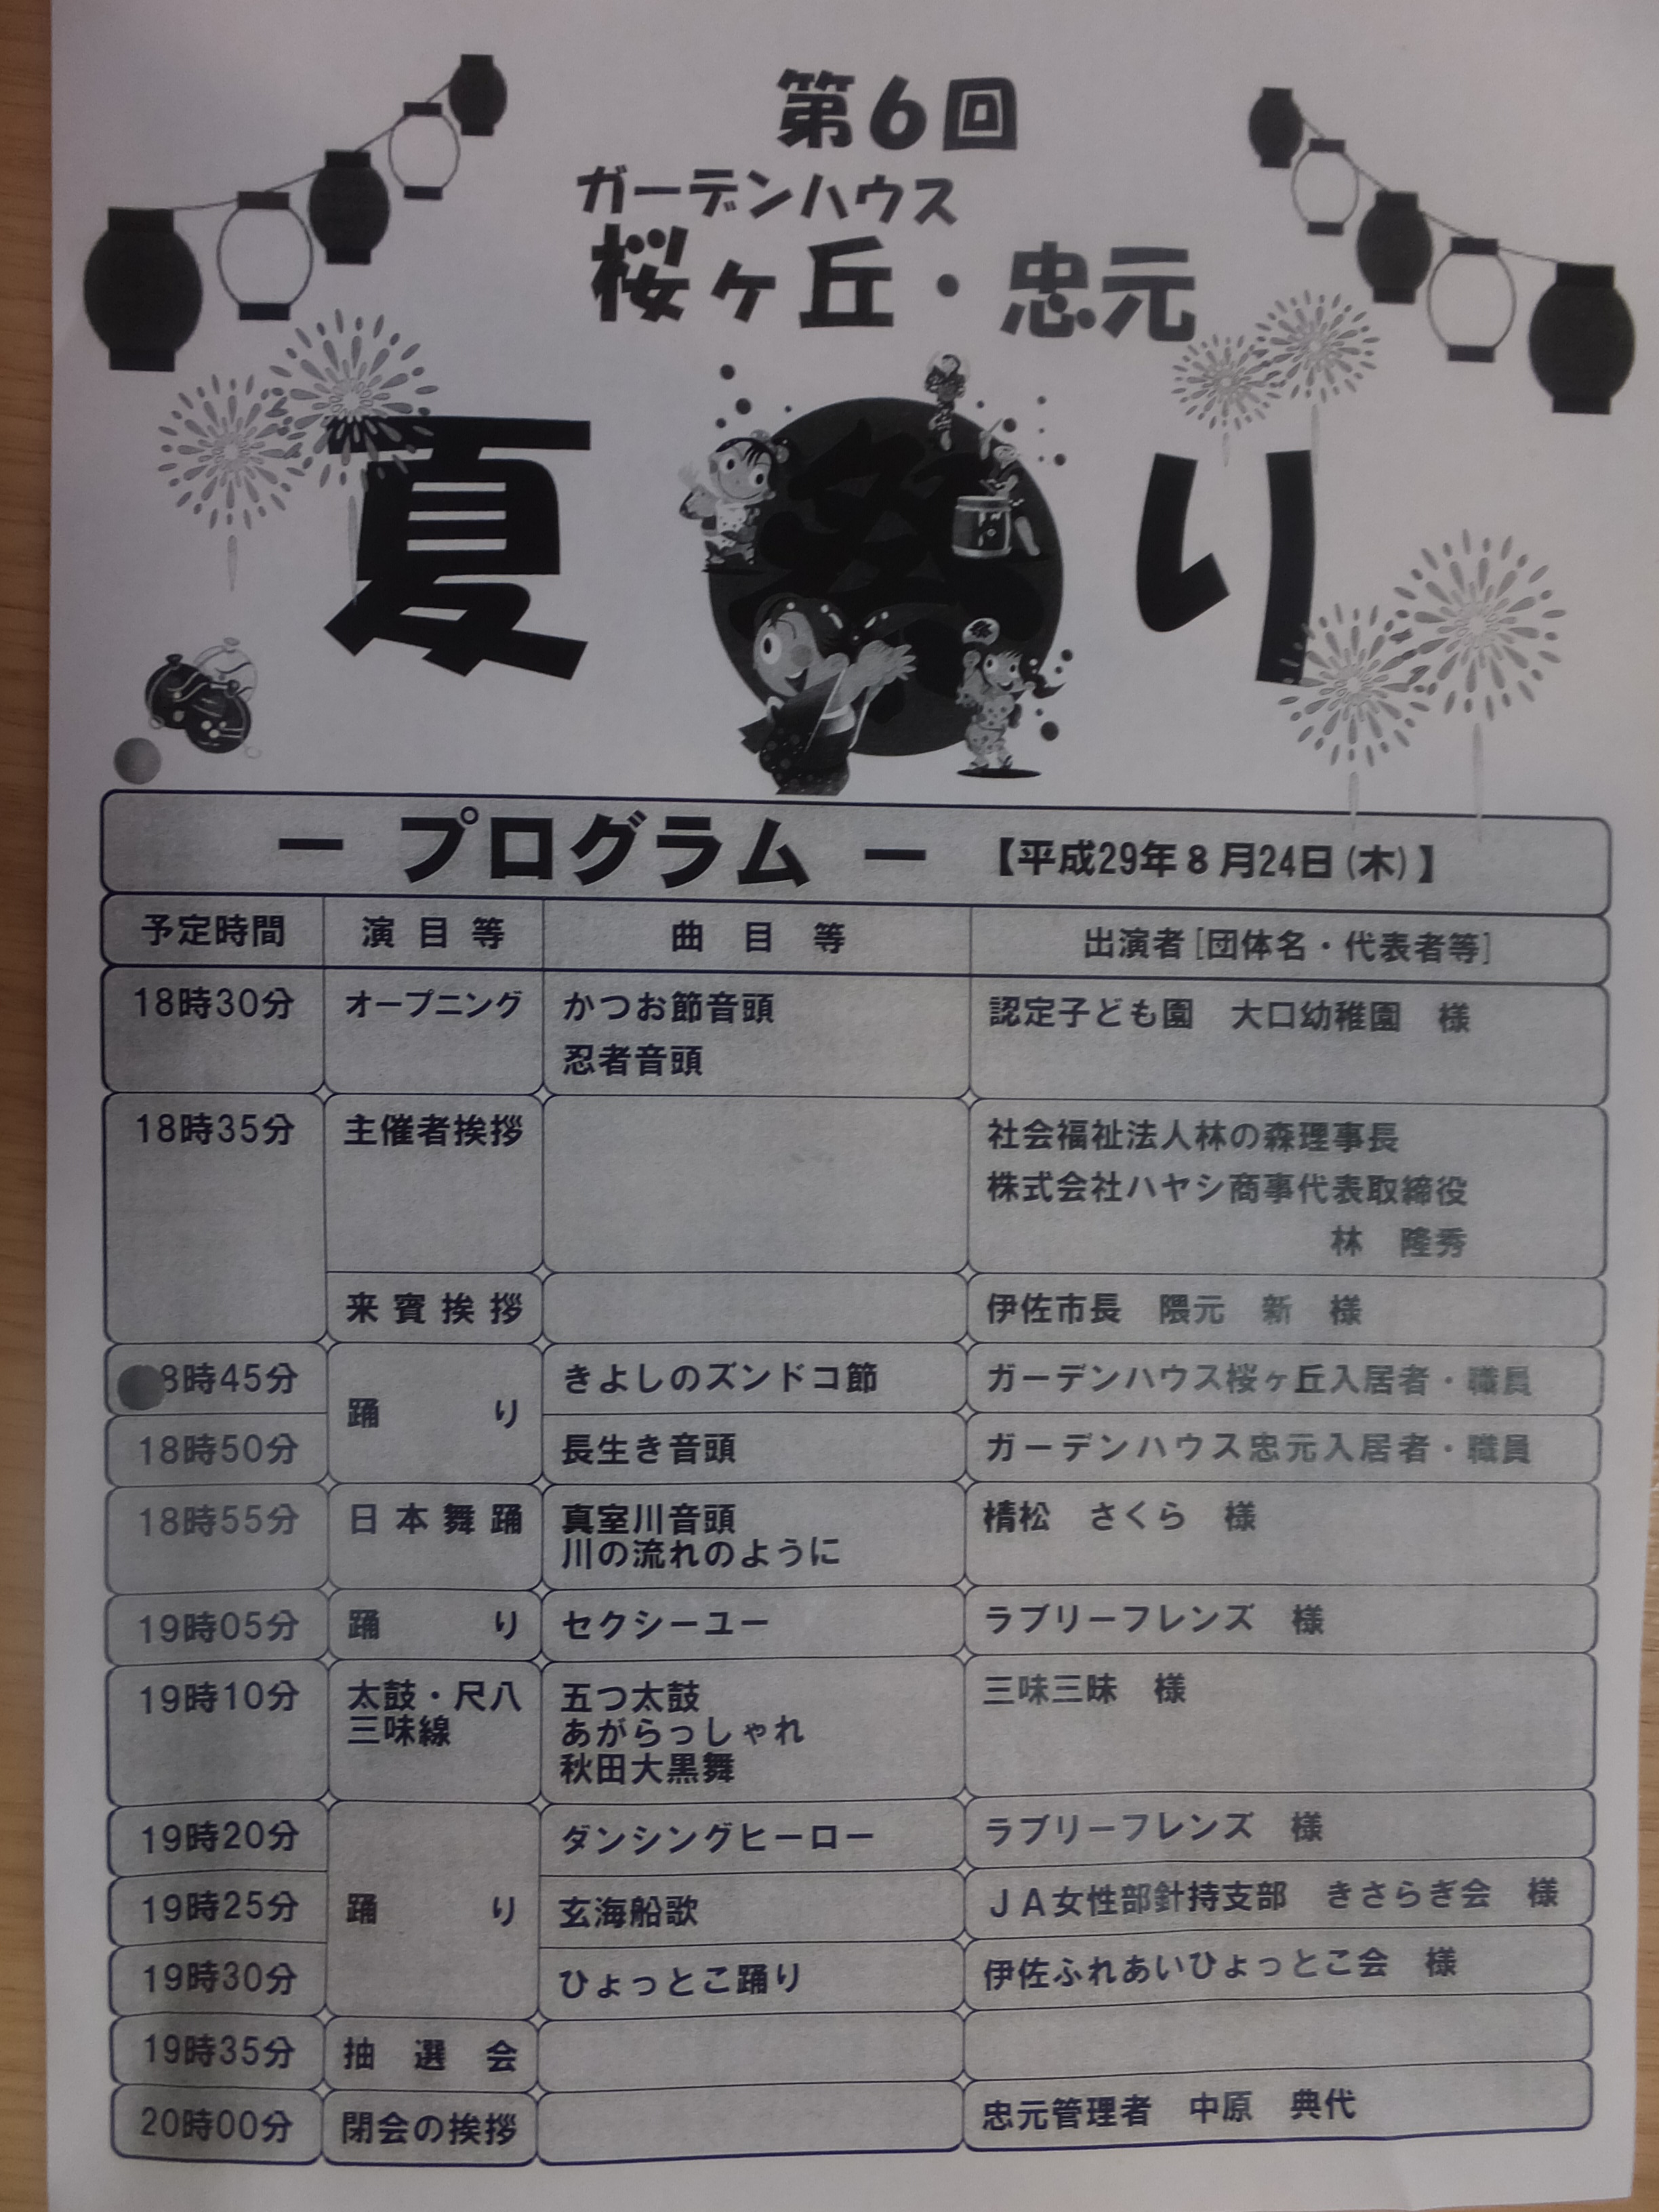 第6回
ガーデンハウス
桜ヶ丘・忠元
夏祭り
ー プログラム ー 【平成29年8月24日(木)】
予定時間 演目等 曲目等 出演者[団体名・代表者等]
18時30分 オープニング かつお節音頭 認定子ども園 大口幼稚園 様
忍者音頭
18時35分 主催者挨拶 社会福祉法人林の森理事長
株式会社ハヤシ商事代表取締役
林 隆秀
来賓挨拶 伊佐市長 隈元 新 様
8時45分 踊り きよしのズンドコ節 ガーデンハウス桜ヶ丘入居者・職員
18時50分 長生き音頭 ガーデンハウス忠元入居者・職員
18時55分 日本舞踊 真室川音頭 さくら 様
川の流れのように
19時05分 踊り セクシーユー ラブリーフレンズ 様
19時10分 太鼓・尺八 五つ太鼓 三味三昧 様
三味線 あがらっしゃれ
秋田大黒舞
19時20分 ダンシングヒーロー ラブリーフレンズ 様
19時25分 踊り 玄海船歌 JA女性部針持支部 きさらぎ会 様
19時30分 ひょっとこ踊り 伊佐ふれあいひょっとこ会 様
19時35分 抽選会
20時00分 閉会の挨拶 忠元管理者 中原 典代